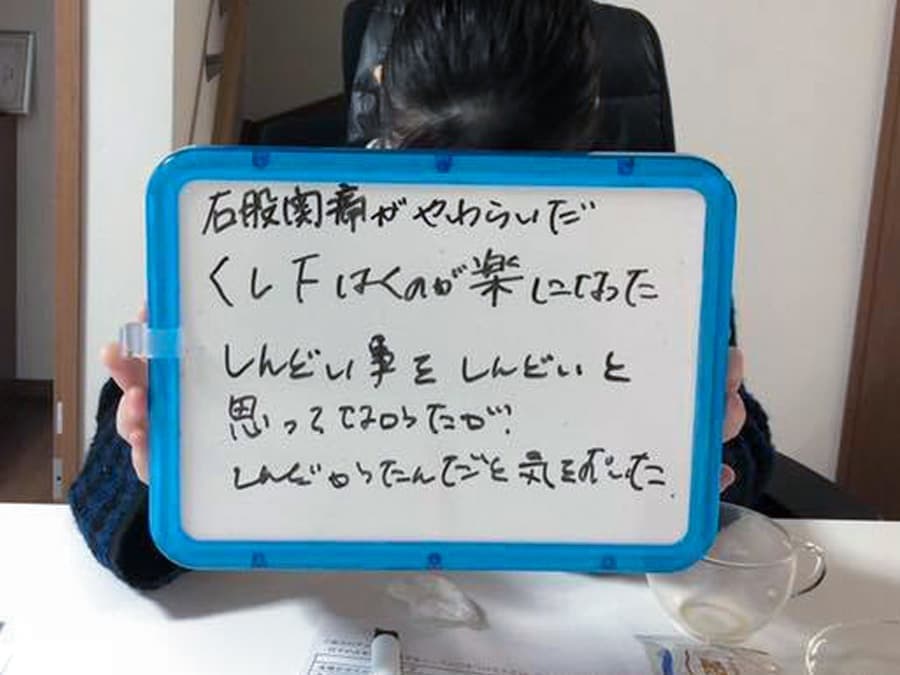 右股関痛がやわらいだ
くし下はくのが楽になった
しんどい事をしんどいと
思ってなかったが、
しんどかったんだと気をむした.